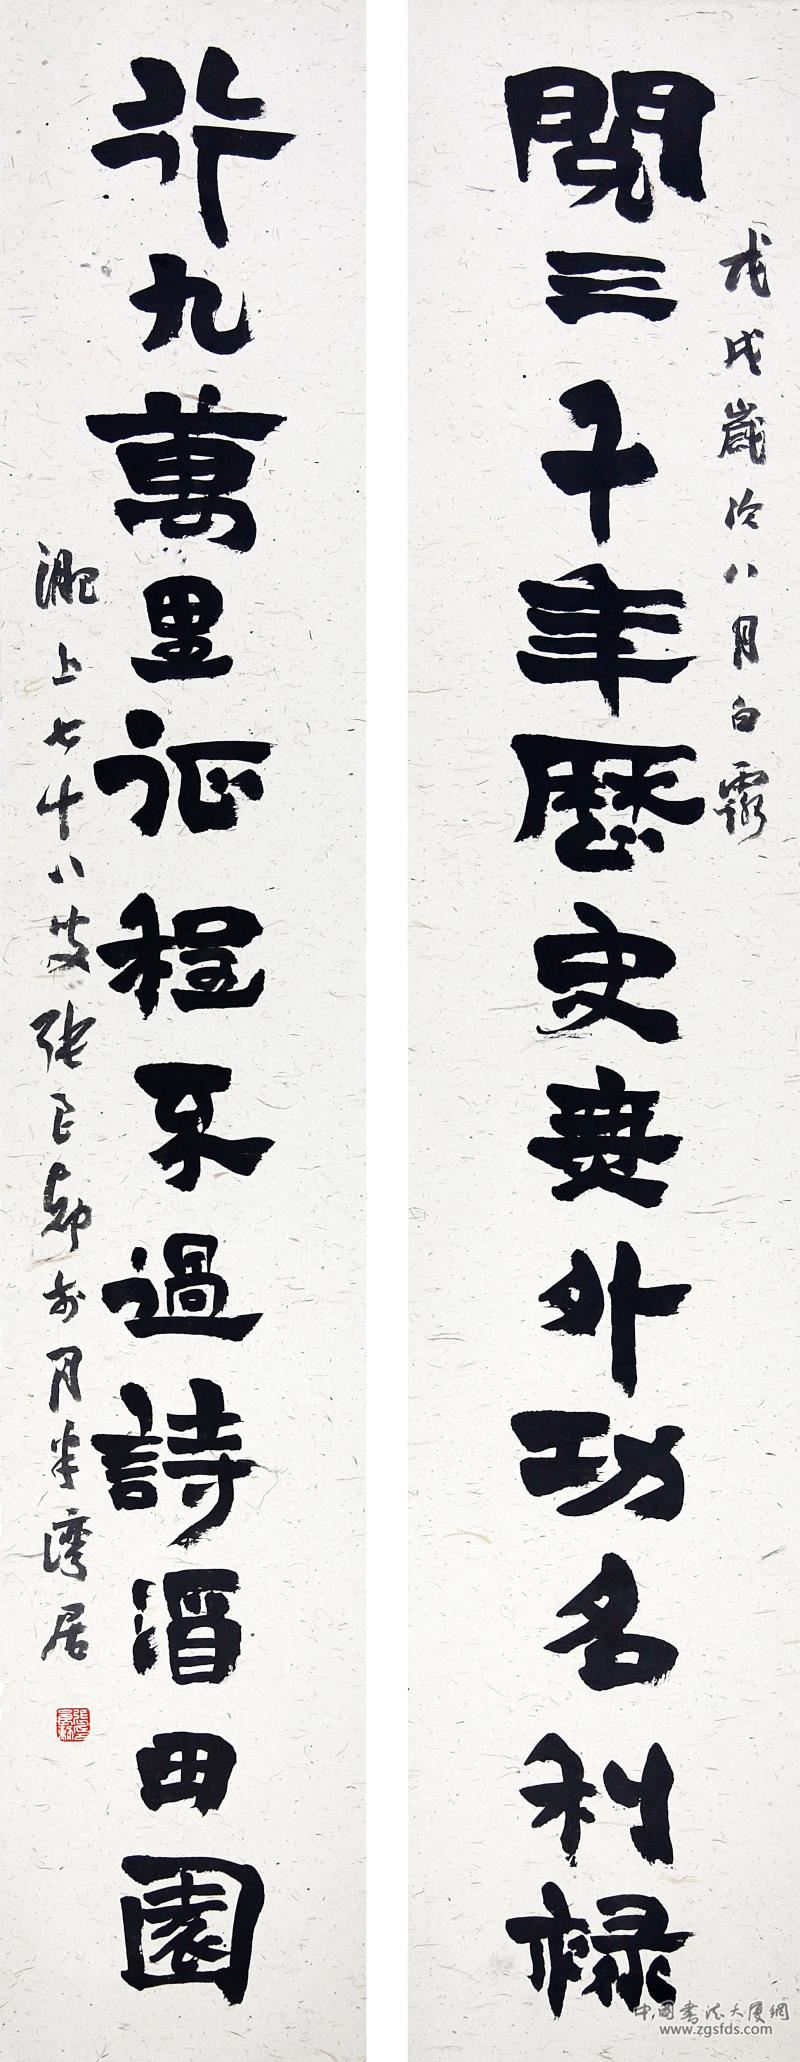 閱三千年歷史無外功名利祿
戊戌歲八月白露
行九萬里征程不過詩酒田園
淝上七十八叟張良勛於月半灣居
中國書法大廈網
www.zgsfds.com